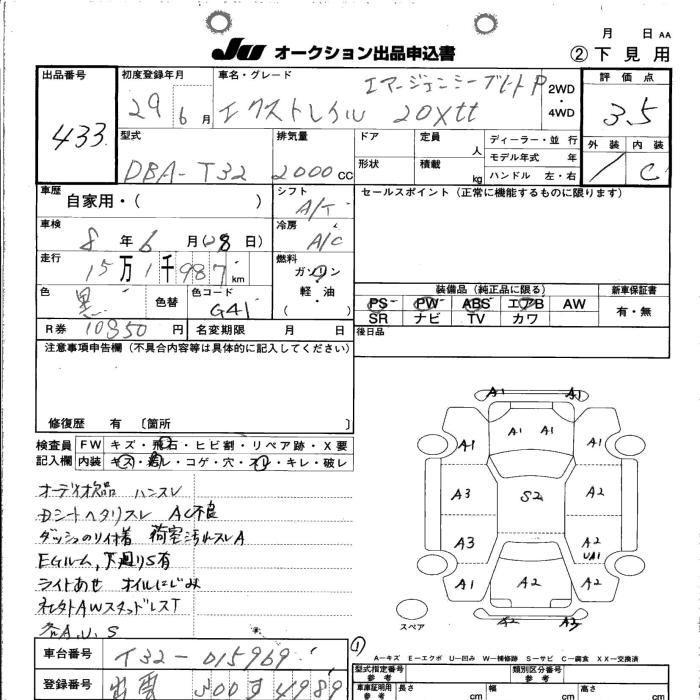 JU オークション出品申込書
月 日 AA
② 下見用
出品番号
433
初度登録年月
29 6 月
車名・グレード
エマージェンシーブレーキP
エクストレイル 20Xtt
2WD
・
4WD
評価点
3.5
外装 内装
C
型式
DBA-T32
排気量
2000 CC
ドア
形状
定員
人
積載
kg
ディーラー・並行
モデル年式 年
ハンドル 左・右
車歴
自家用・( )
シフト
A/T
セールスポイント(正常に機能するものに限ります)
車検
8 年 6 月 (28 日)
冷房
A/C
走行
15万1千987 km
燃料
ガソリン
軽・油
( )
色
黒
色替
色コード
G41
装備品(純正品に限る)
新車保証書
PS PW ABS エアB AW
有・無
SR ナビ TV カワ
R券 10850 円
名変期限 月 日
後日品
注意事項申告欄(不具合内容等は具体的に記入してください)
修復歴 有 〔箇所 〕
検査員
記入欄
FW キズ・飛石・ヒビ割・リペア跡・X要
内装 キズ・汚レ・コゲ・穴・スレ・キレ・破レ
オーディオ欠品 ハンスレ
Dシートヘタリスレ AC不良
ダッシュのり付着 荷室汚れスレA
EGルーム、下廻りS有
ライトあせ オイルにじみ
社外AWスタッドレスT
各A.U.S
A1 A1
A1 A1 A1 A1
A3 S2 A2
A3 A2
UA1
A1 A2 A2
A2 A3
スペア
A—キズ E—エクボ U—凹み W—補修跡 S—サビ C—腐食 XX—交換済
車台番号
T32-015969
登録番号
出雲 300 す 4989
型式指定番号
参考
類別区分番号
参考
車庫証明用
参考
長さ
cm
幅
cm
高さ
cm